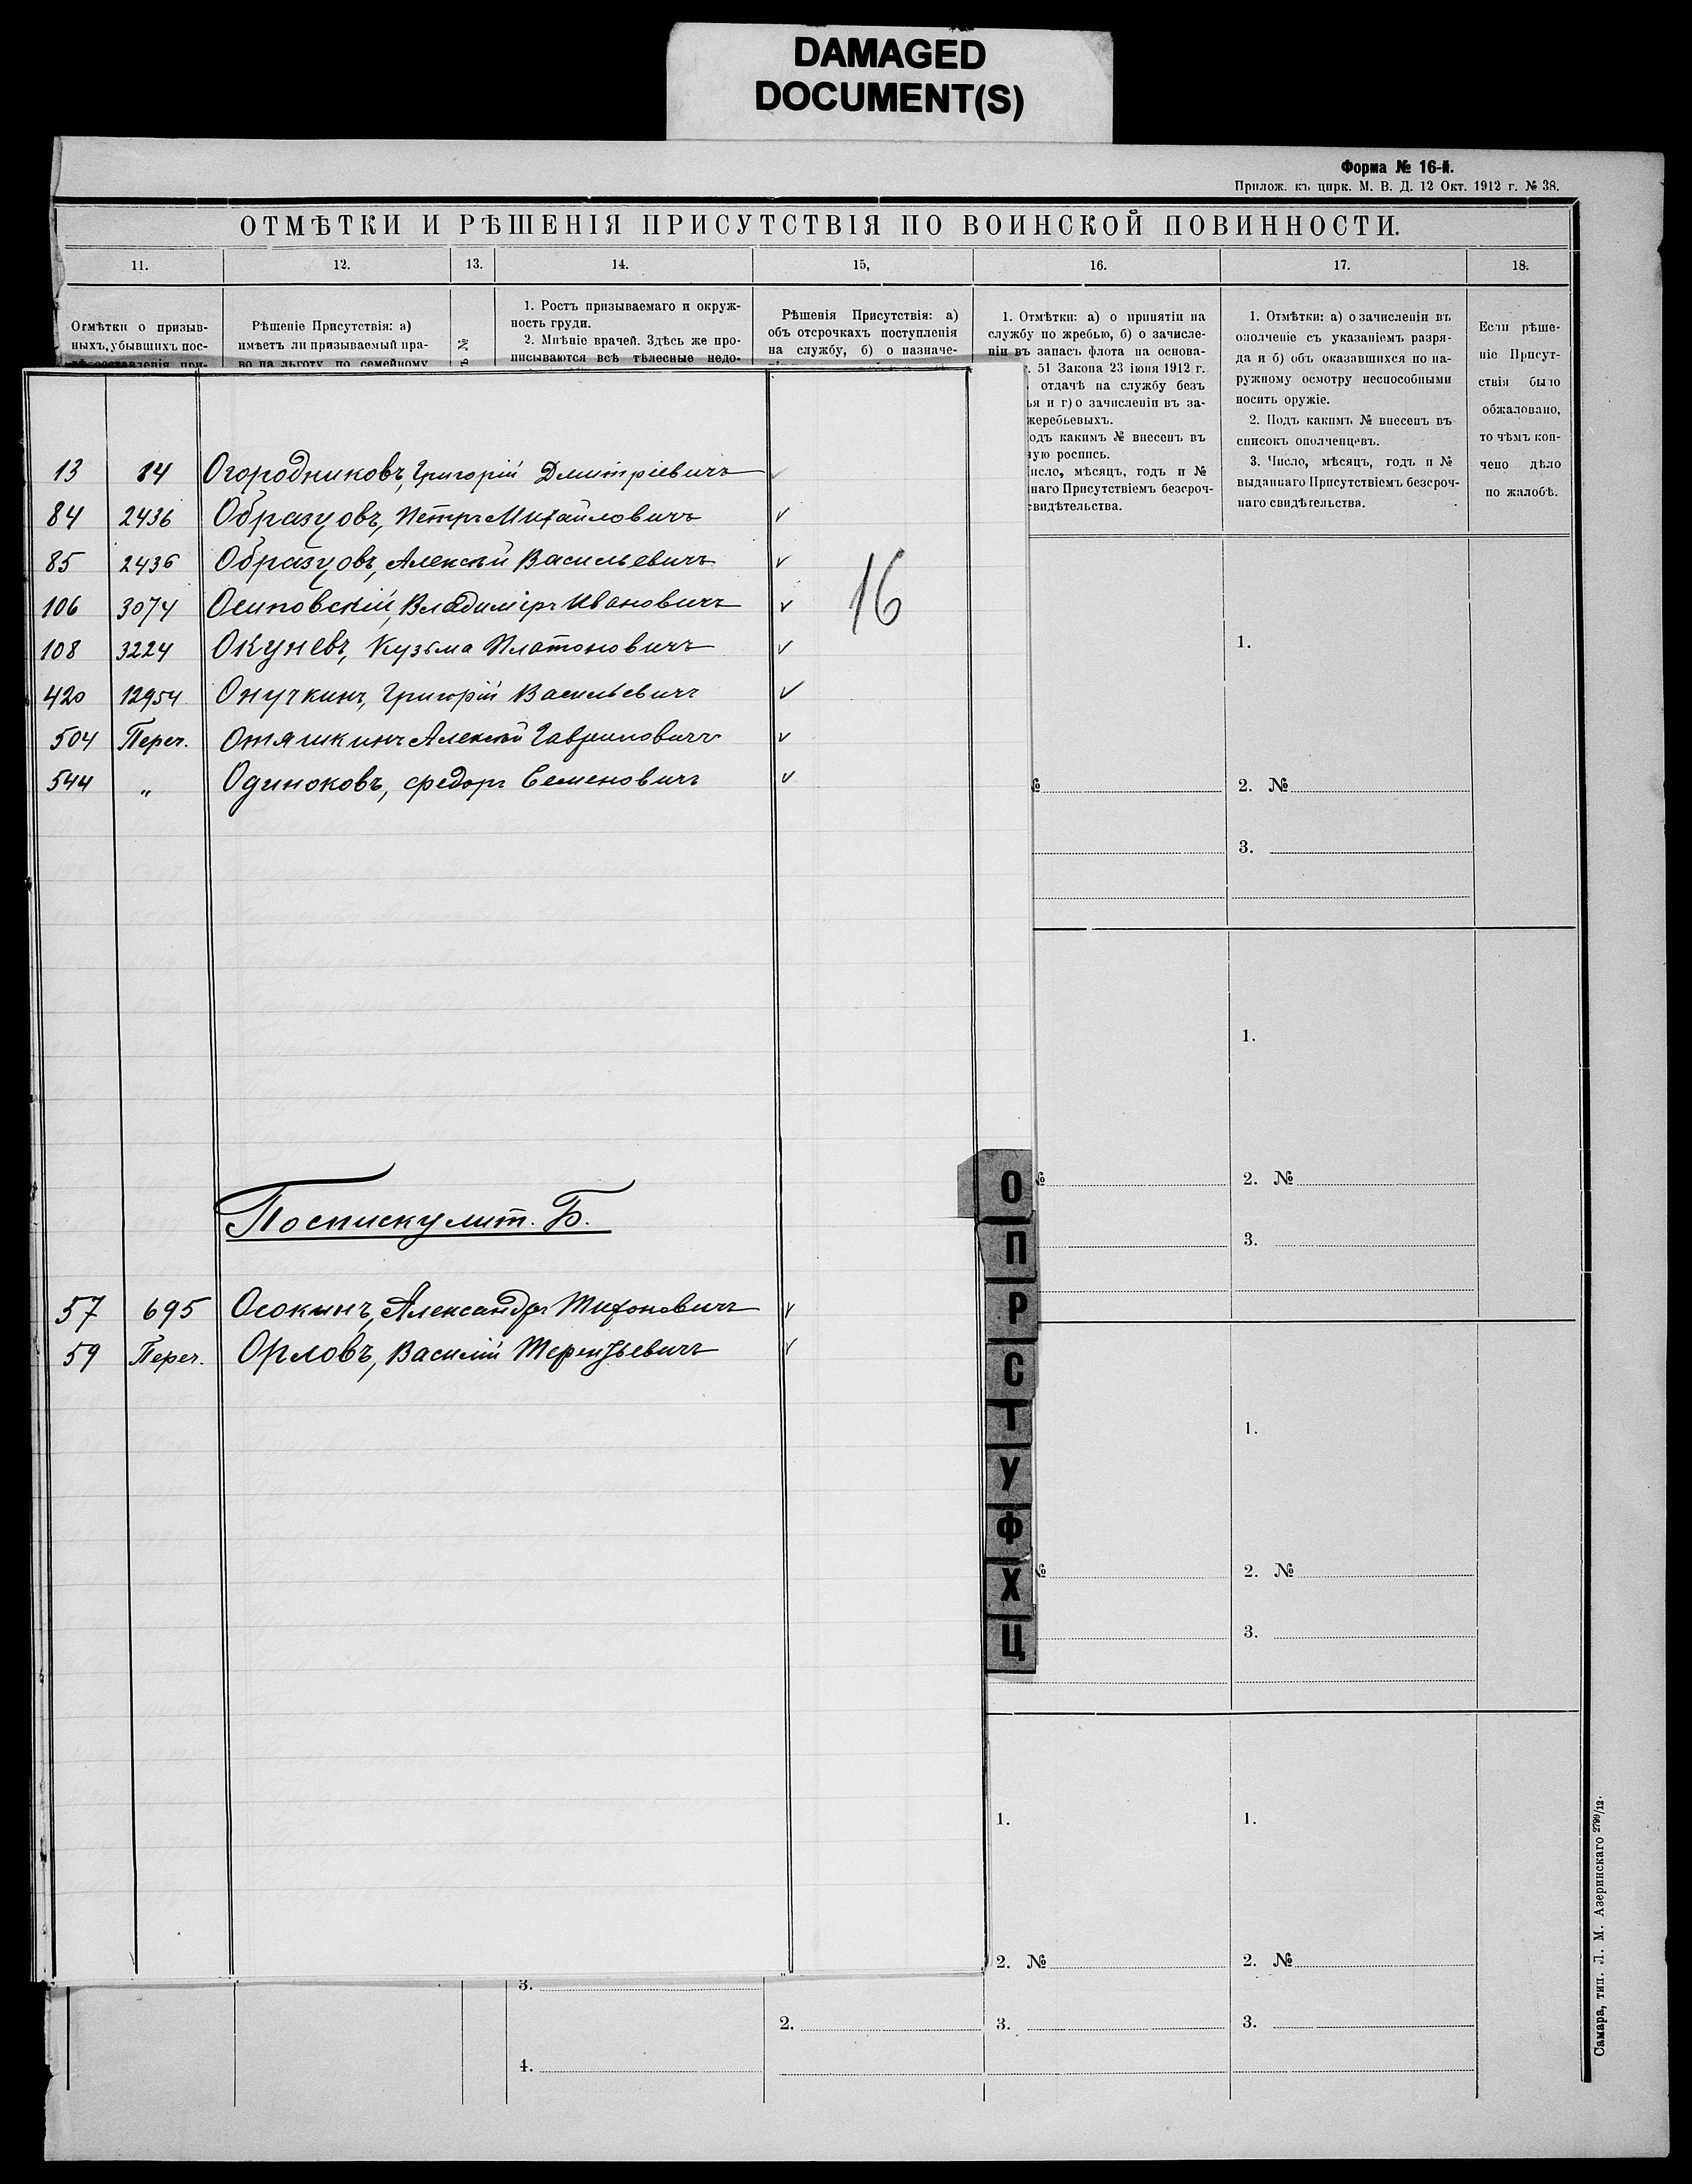 DAMAGED
DOCUMENT(S)
Форма № 16-й.
Прилож. къ цирк. М. В. Д. 12 Окт. 1912 г. № 38.
ОТМѢТКИ И РѢШЕНІЯ ПРИСУТСТВІЯ ПО ВОИНСКОЙ ПОВИННОСТИ.
11. 12. 13. 14. 15, 16. 17. 18.
Отмѣтки о призыв-
ныхъ, убывшихъ пос-
лѣ составленія при-
Рѣшеніе Присутствія: а)
имѣетъ ли призываемый пра-
во на льготу по семейному
№
1. Ростъ призываемаго и окруж-
ность груди.
2. Мнѣніе врачей. Здѣсь же про-
писываются всѣ тѣлесные недо-
Рѣшенія Присутствія: а)
объ отсрочкахъ поступленія
на службу, б) о назначе-
1. Отмѣтки: а) о принятіи на
службу по жребью, б) о зачисле-
ніи въ запасъ флота на основа-
. 51 Закона 23 іюня 1912 г.
отдачѣ на службу безъ
ья и г) о зачисленіи въ за-
жеребьевыхъ.
одъ какимъ № внесенъ въ
ую роспись.
исло, мѣсяцъ, годъ и №
наго Присутствіемъ безсроч-
свидѣтельства.
1. Отмѣтки: а) о зачисленіи въ
ополченіе съ указаніемъ разря-
да и б) объ оказавшихся по на-
ружному осмотру неспособными
носить оружіе.
2. Подъ какимъ № внесенъ въ
списокъ ополченцевъ.
3. Число, мѣсяцъ, годъ и №
выданнаго Присутствіемъ безсроч-
наго свидѣтельства.
Если рѣше-
ніе Присут-
ствія было
обжаловано,
то чѣмъ кон-
чено дѣло
по жалобѣ.
13 14 Огородниковъ, Григорій Дмитріевичъ
84 2436 Образцовъ, Петръ Михайловичъ
85 2436 Образцовъ, Алексѣй Васильевичъ
106 3074 Осиповскій, Владиміръ Ивановичъ
16
108 3224 Окуневъ, Кузьма Платоновичъ
420 12954 Онучкинъ, Григорій Васильевичъ
504 Переч. Отяшкинъ Алексѣй Гавриловичъ
544 „ Одиноковъ, Федоръ Семеновичъ
По списку лит. Б.
57 695 Осокинъ, Александръ Тихоновичъ
59 Переч. Орловъ, Василій Терентьевичъ
О
П
Р
С
Т
У
Ф
Х
Ц
1.
№ 2. №
3.
1.
№ 2. №
3.
1.
№ 2. №
3.
1. 1.
2. № 2. №
3.
2. 3. 3.
4.
Самара, тип. Л. М. Азеринскаго 2799/12.